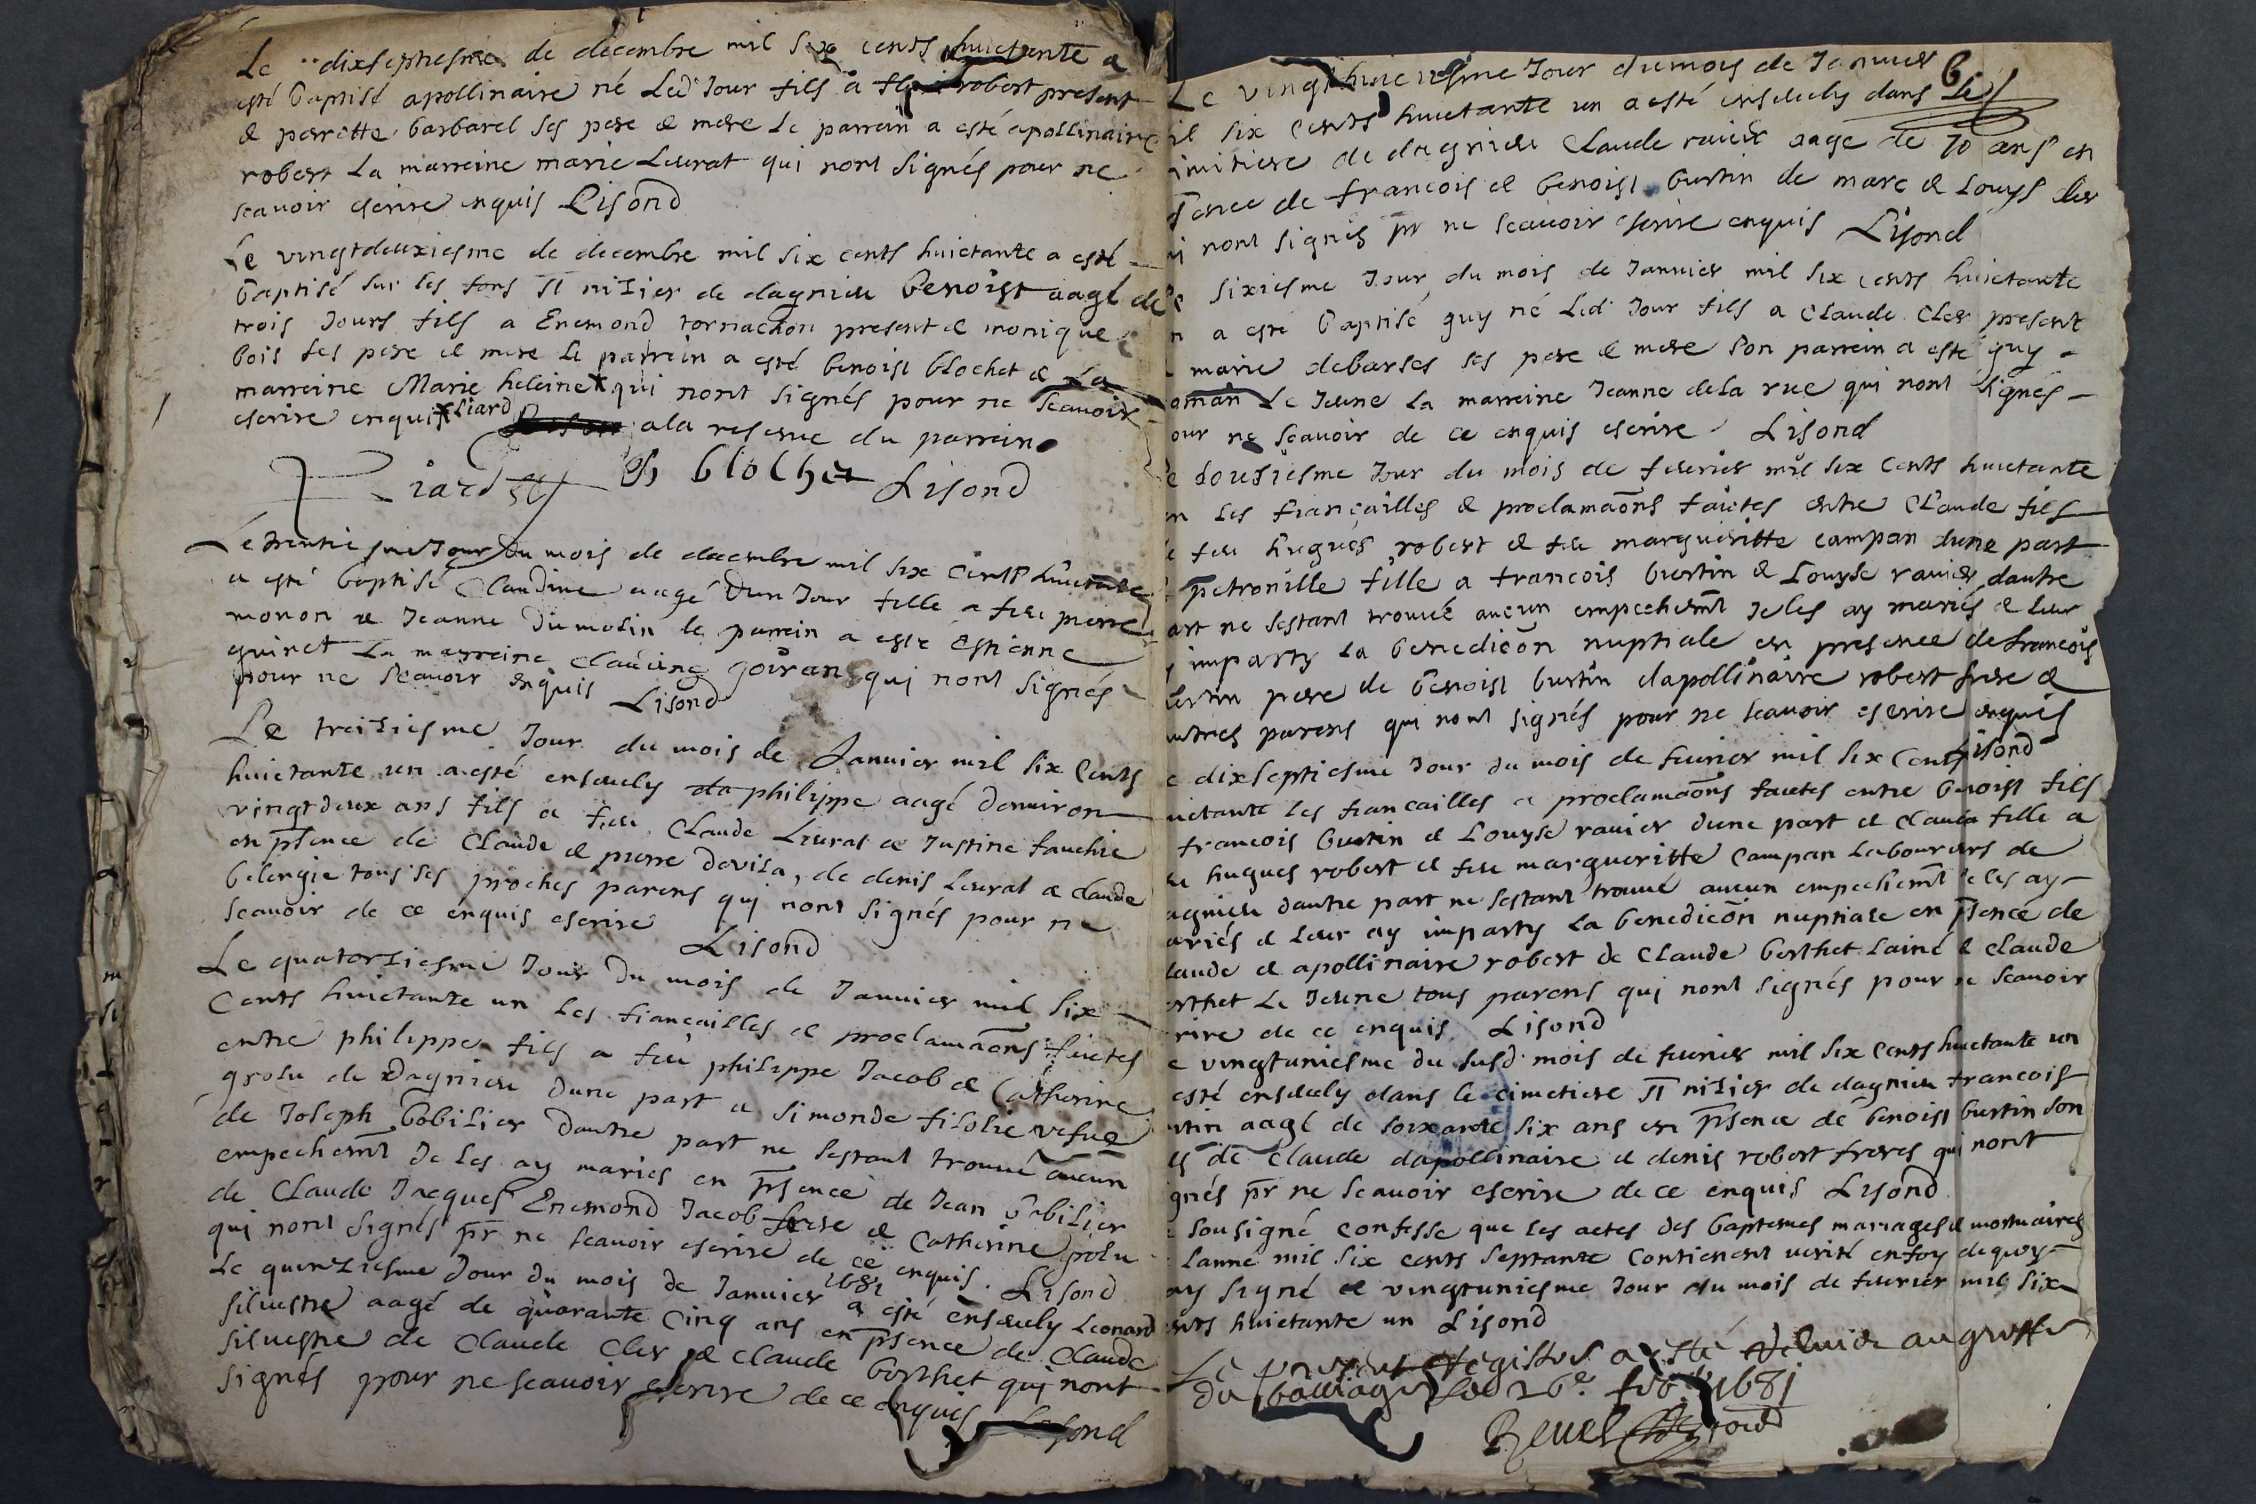 Le dixseptiesme de decembre mil six cents huictante a
esté baptisé apollinaire né Led Jour fils a robert present
& perrette barbarel ses pere & mere le parrein a esté apollinaire
robert La marreine marie Leurat qui nont signés pour ne
scauoir escrire enquis Lisond
Le vingtdeuxiesme de decembre mil six cents huictante a esté
baptisé sur les fons St nizier de dagnieu benoist aagé de
trois Jours fils a Enemond tornachon present & monique
bois ses pere & mere le parrein a esté benoist blochet & La
marreine Marie heleine qui nont signés pour ne scauoir
escrire enquis Liard ala reserue du parrein
Liard B blochet Lisond
Le trentiesme Jour du mois de decembre mil six cents huictante
a esté baptisé Claudine aagé dun Jour fille a feu pierre
monon & Jeanne dumolin le parrein a esté Estienne
quinet La marreine Claudine goiran qui nont signés
pour ne scauoir enquis Lisond
Le treiziesme Jour du mois de Januier mil six Cents
huictante un a esté enseuely philippe aagé denuiron
vingtdeux ans fils a feu Claude Leurat & Justine fauchie
en psence de Claude & pierre devila, de denis Leurat & claude
belergie tous ses proches parens qui nont signés pour ne
scauoir de ce enquis escrire Lisond
Le quatorziesme Jour du mois de Januier mil six
Cents huictante un les fiancailles & proclamaons faictes
entre philippe fils a feu philippe Jacob & Catherine
grolu de Dagnieu dune part & simonde filolie vefue
de Joseph bobilier dautre part ne sestant trouué aucun
empechemt Je les ay mariés en psence de Jean bobilier
de Claude Jacques Enemond Jacob frere & Catherine grolu
qui nont signés pr ne scauoir escrire de ce enquis Lisond
Le quinziesme Jour du mois de Januier 1681 a esté enseuely Leonard
siluestre aagé de quarante cinq ans en psence de Claude
siluestre de Claude Cler & Claude berthet qui nont
signés pour ne scauoir escrire de ce enquis Lisond
Le vingthuictiesme Jour du mois de Januier
il six Cents huictante un a esté enseuely dans Le
imitiere de dagnieu Claude rauier aage de 70 ans en
sence de francois & benoist burtin de marc & Louys cler
i nont signés pr ne scauoir escrire enquis Lisond
sixiesme Jour du mois de Januier mil six cents huictante
n a esté baptisé guy né Led Jour fils a Claude Cler present
marie debarses ses pere & mere son parrein a esté guy
aman Le Jeune La marreine Jeanne dela rue qui nont signés
our ne scauoir de ce enquis escrire Lisond
e douziesme Jour du mois de feurier mil six cents huictante
n les fiancailles & proclamaons faictes entre Claude fils
feu hugues robert & feu margueritte campan dune part
petronille fille a francois burtin & Louyse rauier dautre
art ne sestant trouué aucun empechemt Je les ay mariés & leur
y imparty La benedicon nuptiale en presence de francois
burtin pere de benoist burtin dapollinaire robert frere &
utres parens qui nont signés pour ne scauoir escrire enquis
Lisond
e dixseptiesme Jour du mois de feurier mil six Cents
uictante les fiancailles & proclamaons faictes entre benoist fils
francois burtin & Louyse rauier dune part & clauda fille a
eu hugues robert & feu margueritte Campan Laboureurs de
agnieu dautre part ne sestant trouué aucun empechemt Je les ay
ariés & leur ay imparty La benedicon nuptiale en psence de
laude & apollinaire robert de Claude berthet lainé & claude
erthet Le Jeune tous parens qui nont signés pour ne scauoir
rire de ce enquis Lisond
e vingtuniesme du susd mois de feurier mil six cents huictante un
esté enseuely dans le cimetiere St nizier de dagnieu francois
urtin aagé de soixante six ans en psence de benoist burtin son
ls de Claude dapollinaire & denis robert freres qui nont
gnés pr ne scauoir escrire de ce enquis Lisond
e sousigné confesse que les actes des baptemes mariages & mortuaires
lanné mil six cents septante Contienent verité en foy dequoy
ay signé ce vingtuniesme Jour du mois de feurier mil six
ents huictante un Lisond
Le present Registre a esté Remis au greffe
du balliage Led 26e feb 1681
Reuel